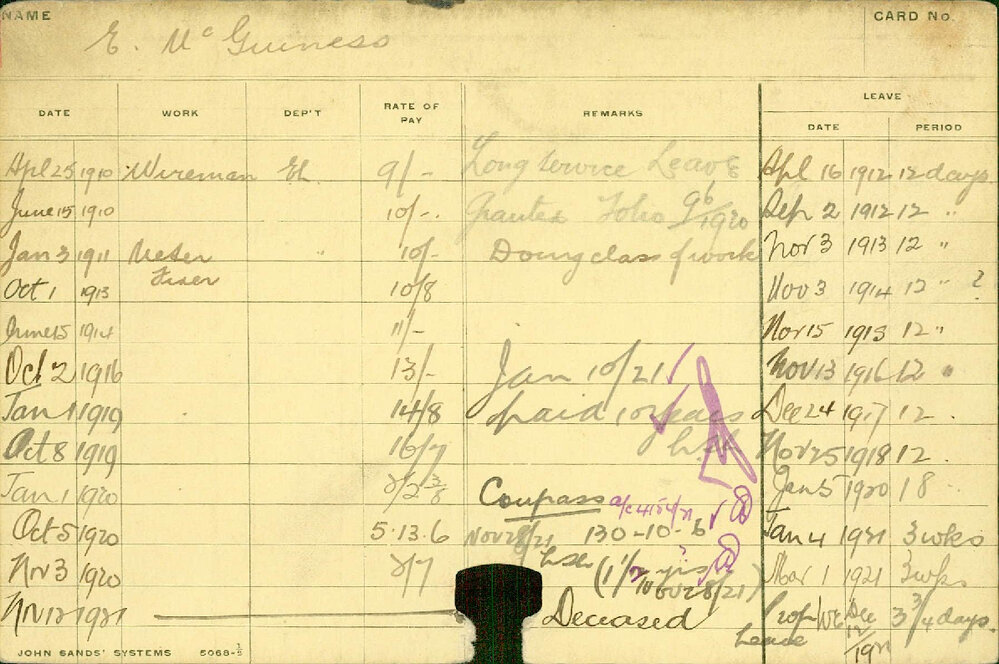 NAME E. McGuiness CARD No.
LEAVE
DATE WORK DEP'T RATE OF PAY REMARKS DATE PERIOD
Apl 25 1910 Wireman El. 9/- Long Service Leave Apl 16 1912 12 days
June 15 1910 10/-. Granted Folio 96/1920 Sep 2 1912 12 "
Jan 3 1911 Meter " 10/- Doing class of work Nov 3 1913 12 "
Oct 1 1913 Fixer 10/8 Nov 3 1914 12 " ?
June 15 1914 11/- Nov 15 1915 12 "
Oct 2 1916 13/- Jan 10/21 Nov 13 1916 12 "
Jan 1 1919 14/8 paid 10 years Dec 24 1917 12 .
Oct 8 1919 16/7 Nov 25 1918 12 .
Jan 1 1920 Compass Jan 5 1920 18
Oct 5 1920 5.13.6 Nov 28/21 130-10-6 Jan 4 1921 3 wks
Nov 3 1920 Mar 1 1921 3 wks
Nov 12 1921 Deceased Prop Leave Dec 12/1921 3 3/4 days.
JOHN SANDS' SYSTEMS 5068-